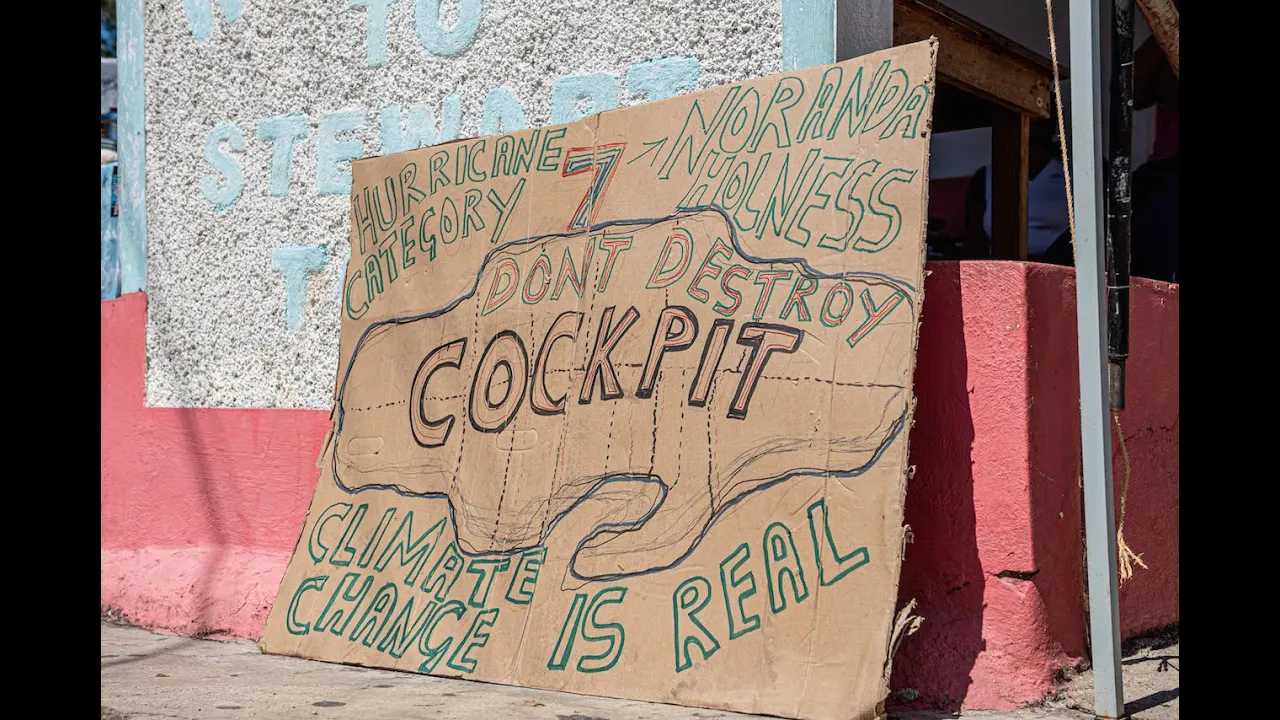 TO
STEWART
T
HURRICANE
CATEGORY
7
→ NORANDA
HOLNESS
DONT DESTROY
COCKPIT
CLIMATE
CHANGE IS REAL